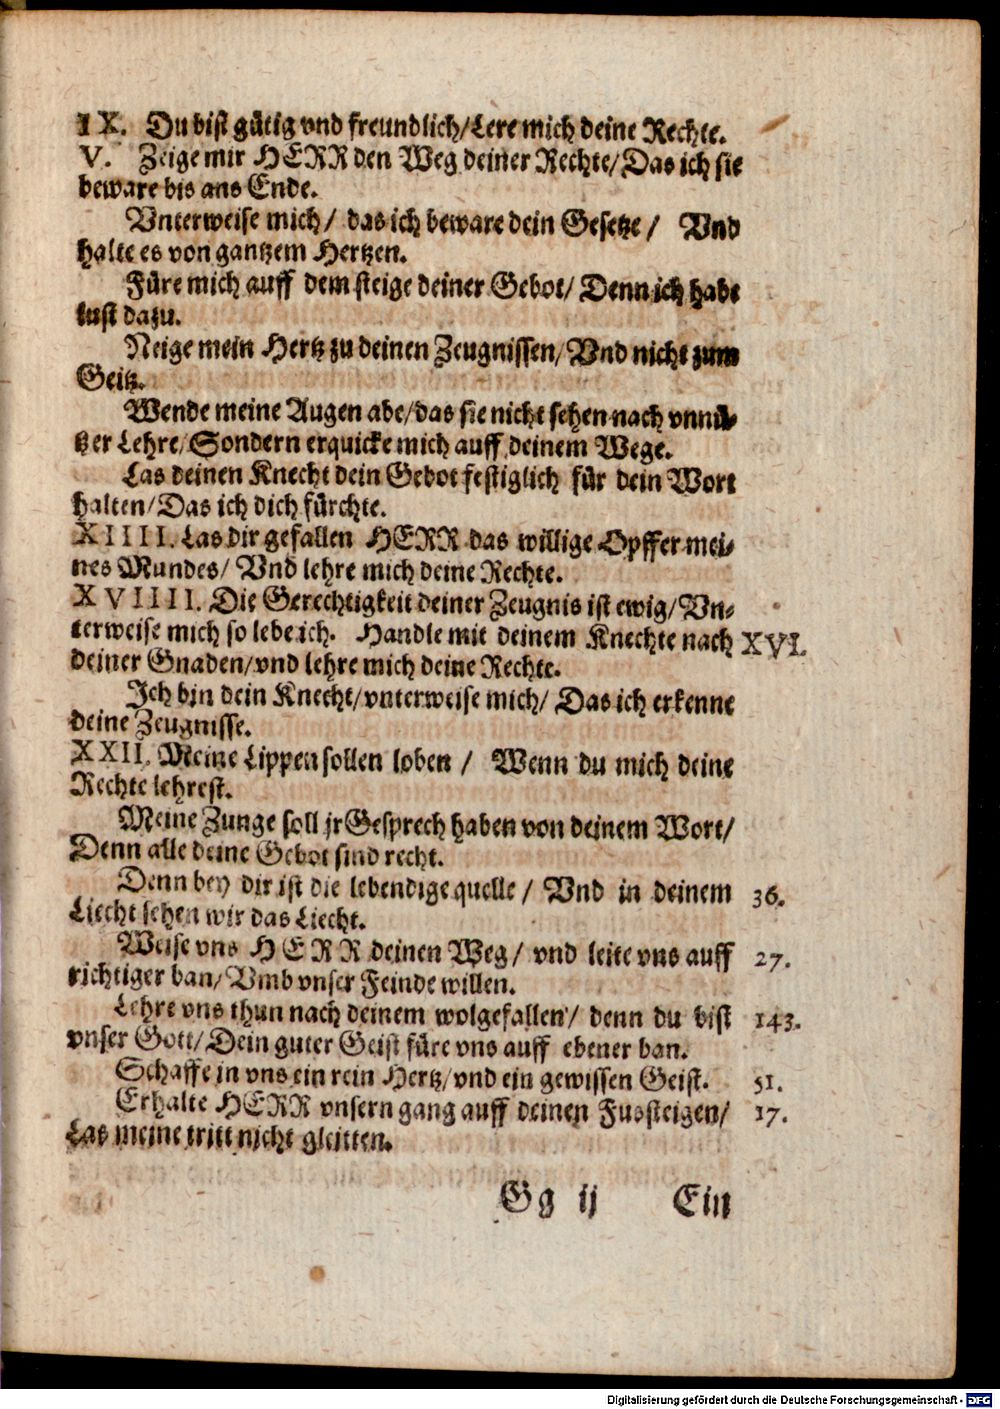 IX. Du bist gütig vnd freundlich/Lere mich deine Rechte.
V. Zeige mir HERR den Weg deiner Rechte/Das ich sie
beware bis ans Ende.
Vnterweise mich/ das ich beware dein Gesetze/ Vnd
halte es von gantzem Hertzen.
Füre mich auff dem steige deiner Gebot/ Denn ich habe
lust dazu.
Neige mein Hertz zu deinen Zeugnissen/Vnd nicht zum
Geitz.
Wende meine Augen abe/das sie nicht sehen nach vnnü-
tzer Lehre/Sondern erquicke mich auff deinem Wege.
Las deinen Knecht dein Gebot festiglich für dein Wort
halten/Das ich dich fürchte.
XIIII. Las dir gefallen HERR das willige Opffer mei-
nes Mundes/ Vnd lehre mich deine Rechte.
XVIIII. Die Gerechtigkeit deiner Zeugnis ist ewig/Vn-
terweise mich so lebe ich. Handle mit deinem Knechte nach XVI.
deiner Gnaden/vnd lehre mich deine Rechte.
Ich bin dein Knecht/vnterweise mich/ Das ich erkenne
deine Zeugnisse.
XXII. Meine Lippen sollen loben / Wenn du mich deine
Rechte lehrest.
Meine Zunge soll jr Gesprech haben von deinem Wort/
Denn alle deine Gebot sind recht.
Denn bey dir ist die lebendige quelle / Vnd in deinem 36.
Liecht sehen wir das Liecht.
Weise vns HERR deinen Weg/ vnd leite vns auff 27.
richtiger ban/Vmb vnser Feinde willen.
Lehre vns thun nach deinem wolgefallen/ denn du bist 143.
vnser Gott/Dein guter Geist füre vns auff ebener ban.
Schaffe in vns ein rein Hertz/vnd ein gewissen Geist. 51.
Erhalte HERR vnsern gang auff deinen Fussteigen/ 17.
Las meine tritt nicht gleitten.
Gg ij Ein
Digitalisierung gefördert durch die Deutsche Forschungsgemeinschaft - DFG